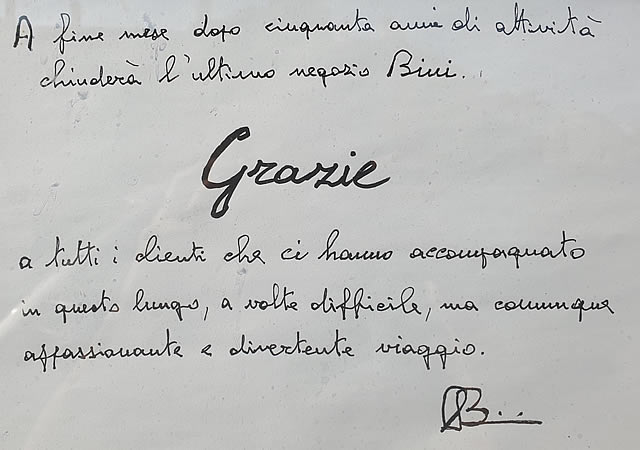 A fine mese dopo cinquanta anni di attività
chiuderà l'ultimo negozio Bini.
Grazie
a tutti i clienti che ci hanno accompagnato
in questo lungo, a volte difficile, ma comunque
appassionante e divertente viaggio.